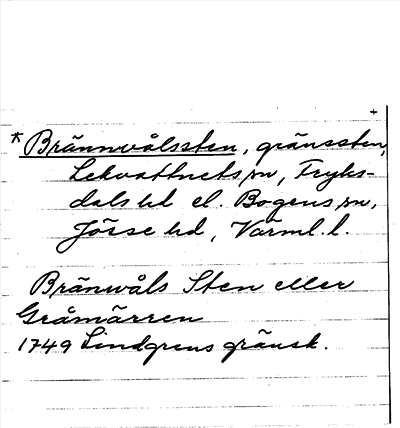 +
* Brännvålssten, gränssten,
Lekvattnets sn, Fryks-
dals hd el. Bogens sn,
Jösse hd, Värml. l.
Bränwåls Sten eller
Gråmärren
1749 Lindgrens gränsk.